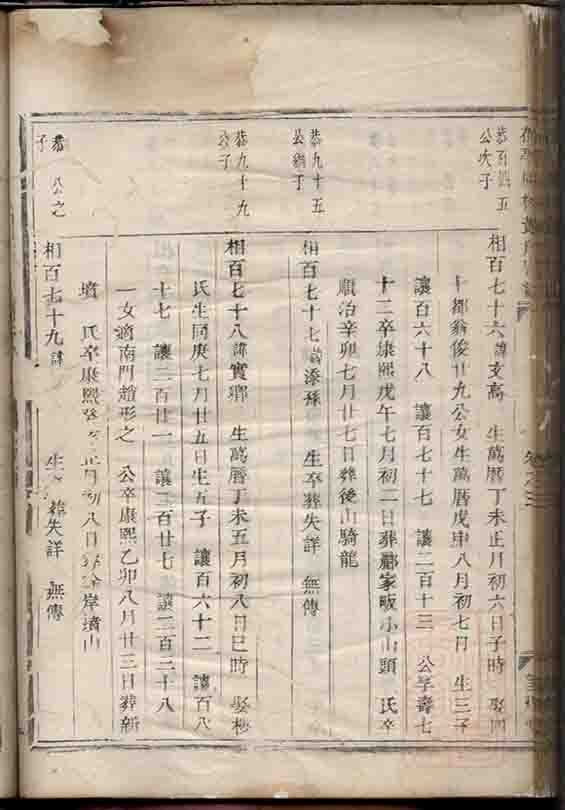 恭百四五
公次子
相百七十六諱支高　生萬曆丁未正月初六日子時　娶四
十都翁俊廿九公女生萬曆戊申八月初七月　生三子
讓百六十八　讓百七十七　讓二百十三　公享壽七
十二卒康熙戊午七月初二日葬酈家畈小山頭　氏卒
順治辛卯七月廿七日葬後山騎龍
恭九十五
公子
相百七十七諱添孫　生卒葬失詳　無傳
恭九十九
公子
相百七十八諱實鄉　生萬曆丁未五月初八日巳時　娶杪
氏生同庚七月廿五日生五子　讓百六十二　讓百八
十七　讓二百廿一　讓二百廿七　讓二百二十八
一女適南門趙形之　公卒康熙乙卯八月廿三日葬新
墳　氏卒康熙　正月初八日　岸墳山
恭　公之
子
相百七十九諱　生　葬失詳　無傳